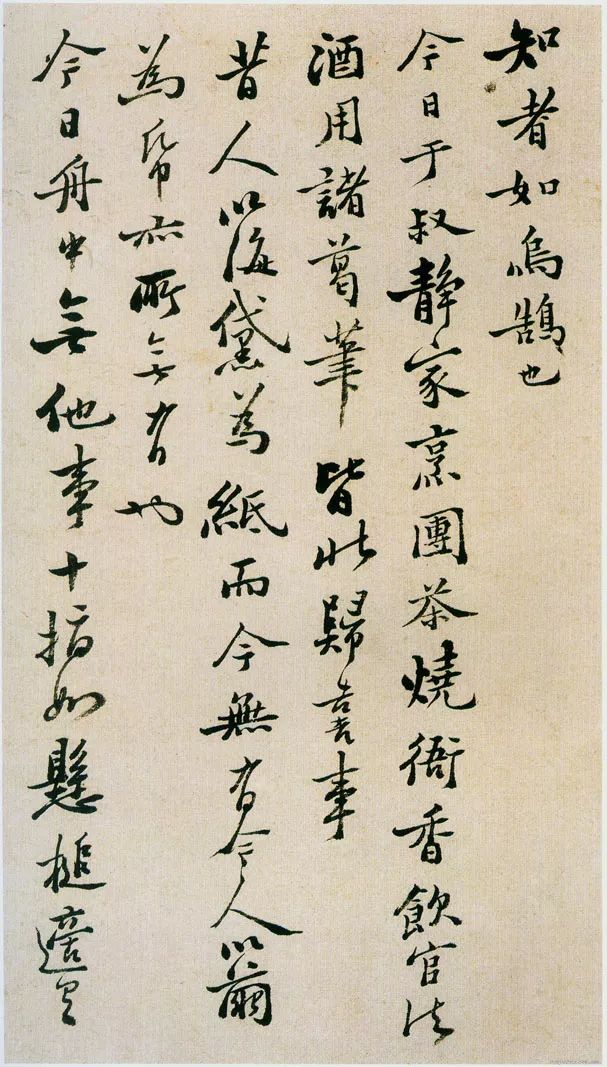 知者如嗚鵠也
今日于叔靜家烹團茶燒衙香飲官法
酒用諸葛筆皆北歸喜事
昔人以海黛為紙而今無有今人以繭
為帋亦所無有也
今日舟中無他事十指如懸槌適